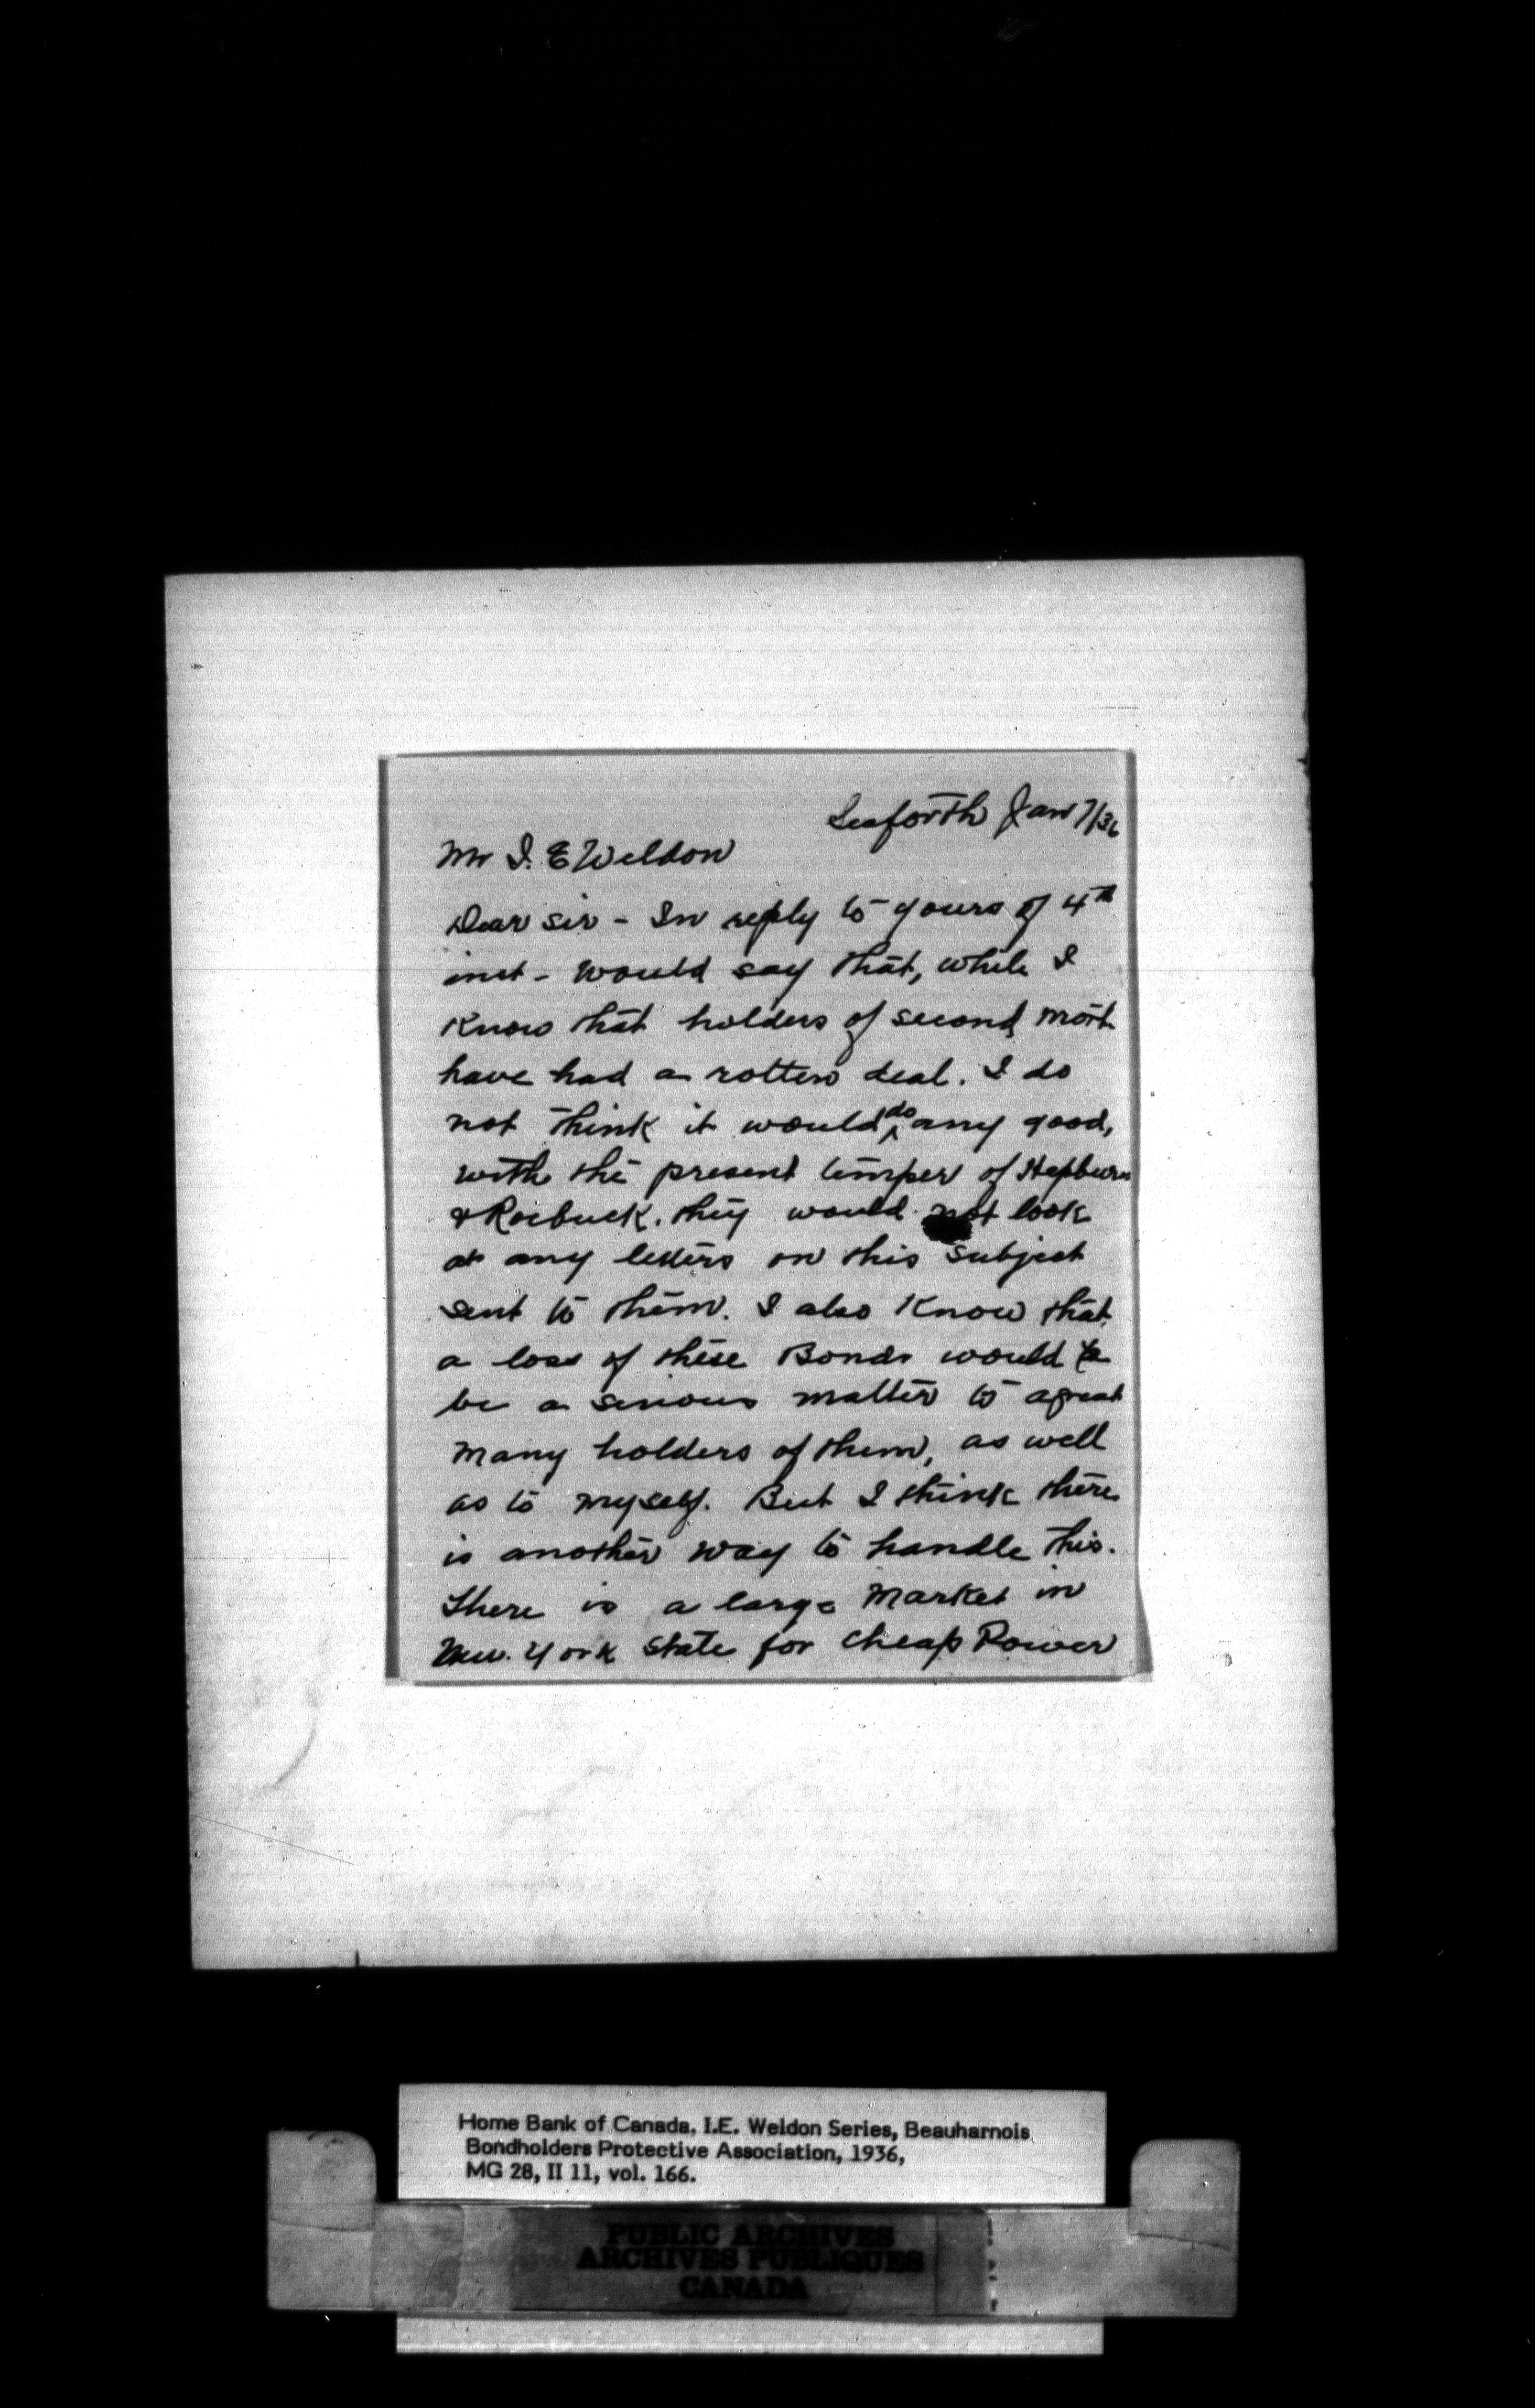 Seaforth Jan 7/36
Mr I. E Weldon
Dear Sir - In reply to yours of 4th
inst - would say that, while I
know that holders of second mort
have had a rotten deal. I do
not think it would do any good,
with the present temper of Hepburn
& Roebuck. they would not look
at any letters on this subject
sent to them. I also know that
a loss of these Bonds would
be a serious matter to a great
many holders of them, as well
as to myself. But I think there
is another way to handle this.
There is a large market in
New. York State for cheap Power
Home Bank of Canada. I.E. Weldon Series, Beauharnois
Bondholders Protective Association, 1936,
MG 28, II 11, vol. 166.
PUBLIC ARCHIVES
ARCHIVES PUBLIQUES
CANADA